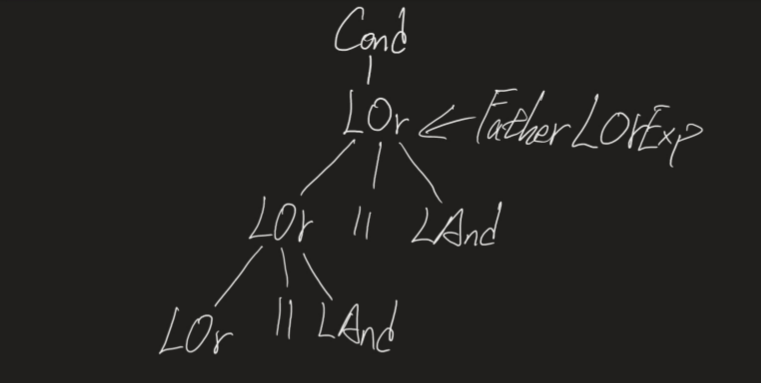 Cond
LOr ← Father LOrExp
LOr || LAnd
LOr || LAnd